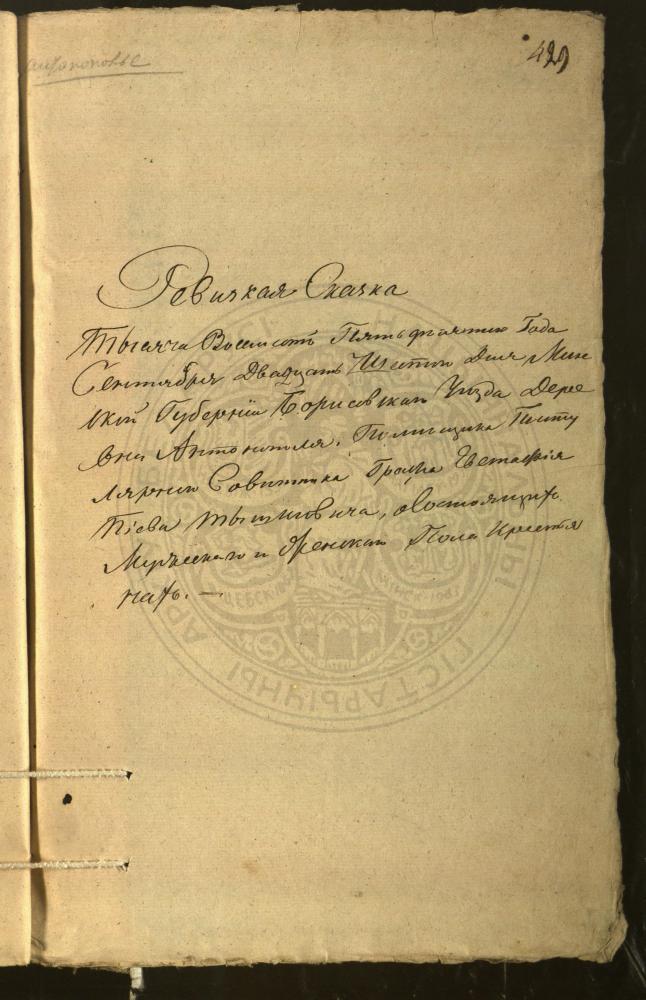 429
Ревизкая Сказка
Тысяча Восемсотъ Пятьдесятаго Года
Сентября Двадцать Шестаго Дня Мин
ской Губернiи Борисовскаго Уезда Дерев
Антонополя. Помещика Титу
лярнаго Советника Графа Евстафiя
Тышкевича, о Состоящихъ
Мужескаго и Женскаго Пола Крестья
нахъ. —
ГІСТАРЫЧНЫ